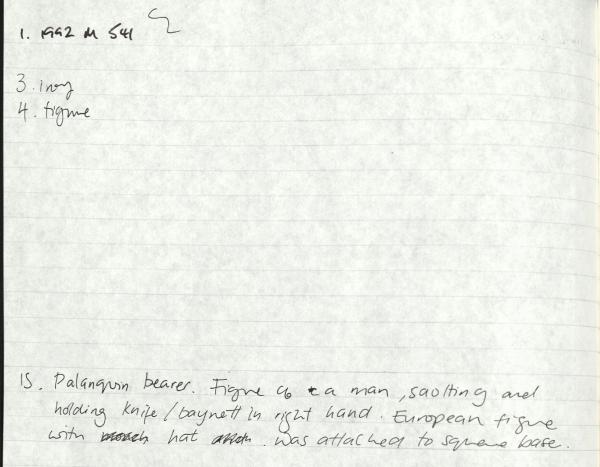 1. 1992 M 541
3. Ivory
4. figure
15. Palanquin bearer. Figure of a man, saolting and
holding knife / baynett in right hand. European figure
with hat. was attached to square base.